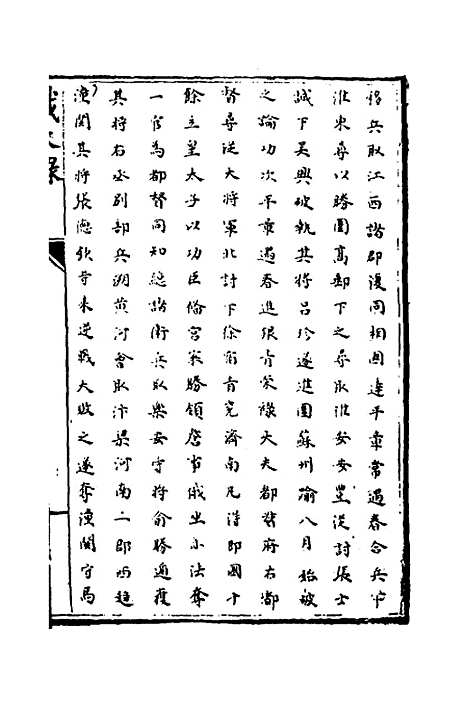 移兵取江西諸郡復同相國達平章常遇春合兵下
淮東尋以勝圍高郵下之尋取淮安安豐從討張士
誠下吳興破執其將呂珍遂進圍蘇州踰八月始破
之論功次平章遇春進銀青榮祿大夫都督府右都
督尋從大將軍北討下徐宿青兗濟南凡淂郡國十
餘立皇太子以功臣俻宮寮勝領詹事俄坐小法奪
一官為都督同知總諸衛兵取樂安守將俞勝遁獲
其將右丞別部兵溯黄河會取汴梁河南二郡西趨
潼関其将張德欽等来逆戰大敗之遂奪潼関守馬